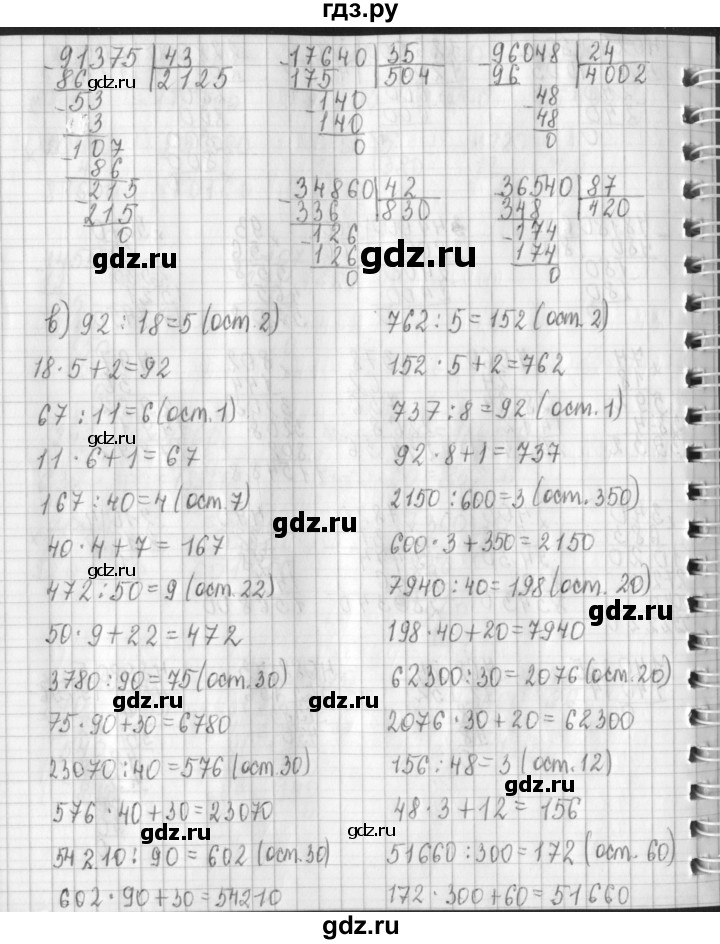 гдз.ру
91375 | 43
86 | 2125
53
3
107
86
215
215
0
17640 | 35
175 | 504
140
140
0
96048 | 24
96 | 4002
48
48
0
34860 | 42
336 | 830
126
126
0
36540 | 87
348 | 420
174
174
0
в) 92 : 18 = 5 (ост. 2)
18 · 5 + 2 = 92
67 : 11 = 6 (ост. 1)
11 · 6 + 1 = 67
167 : 40 = 4 (ост. 7)
40 · 4 + 7 = 167
472 : 50 = 9 (ост. 22)
50 · 9 + 22 = 472
3780 : 90 = 75 (ост. 30)
75 · 90 + 30 = 6780
23070 : 40 = 576 (ост. 30)
576 · 40 + 30 = 23070
54210 : 90 = 602 (ост. 30)
602 · 90 + 30 = 54210
762 : 5 = 152 (ост. 2)
152 · 5 + 2 = 762
737 : 8 = 92 (ост. 1)
92 · 8 + 1 = 737
2150 : 600 = 3 (ост. 350)
600 · 3 + 350 = 2150
7940 : 40 = 198 (ост. 20)
198 · 40 + 20 = 7940
62300 : 30 = 2076 (ост. 20)
2076 · 30 + 20 = 62300
156 : 48 = 3 (ост. 12)
48 · 3 + 12 = 156
51660 : 300 = 172 (ост. 60)
172 · 300 + 60 = 51660
gdz.ru
gdz.ru
gdz.ru
gdz.ru
gdz.ru
gdz.ru
gdz.ru
gdz.ru
gdz.ru
gdz.ru
gdz.ru
gdz.ru
gdz.ru
gdz.ru